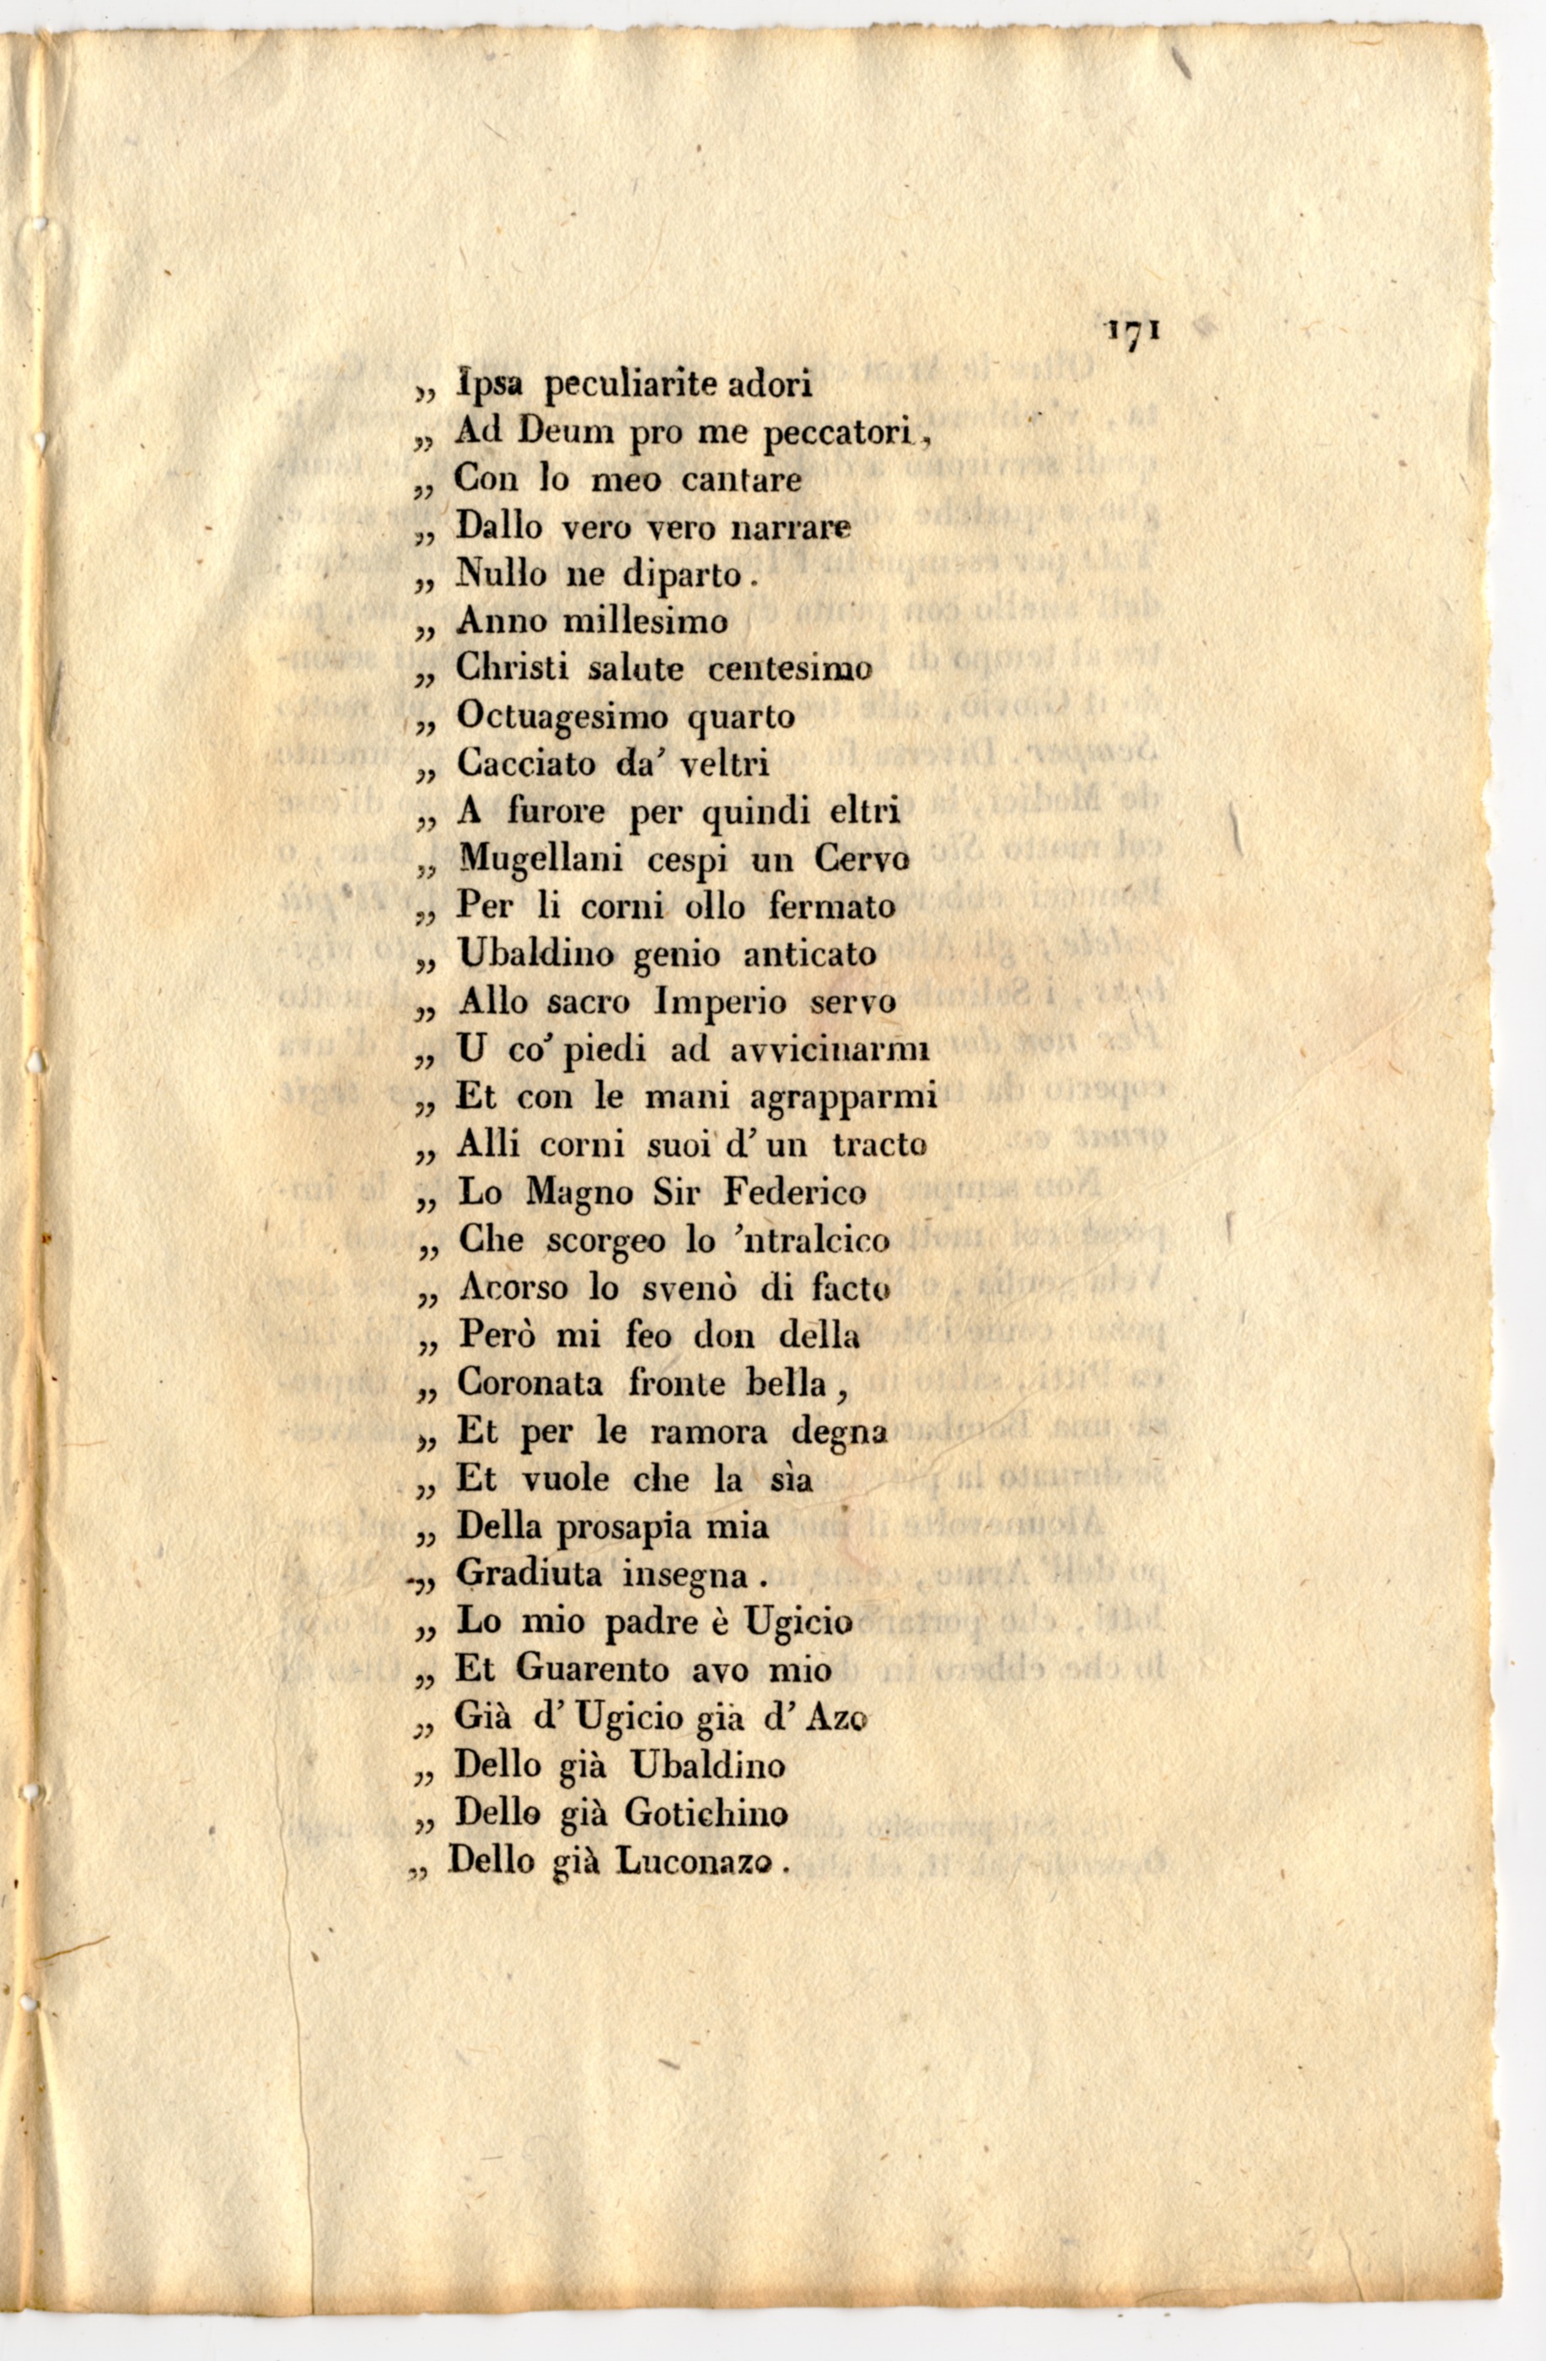 171
„ Ipsa peculiarite adori
„ Ad Deum pro me peccatori,
„ Con lo meo cantare
„ Dallo vero vero narrare
„ Nullo ne diparto.
„ Anno millesimo
„ Christi salute centesimo
„ Octuagesimo quarto
„ Cacciato da' veltri
„ A furore per quindi eltri
„ Mugellani cespi un Cervo
„ Per li corni ollo fermato
„ Ubaldino genio anticato
„ Allo sacro Imperio servo
„ U co' piedi ad avvicinarmi
„ Et con le mani agrapparmi
„ Alli corni suoi d' un tracto
„ Lo Magno Sir Federico
„ Che scorgeo lo 'ntralcico
„ Acorso lo svenò di facto
„ Però mi feo don della
„ Coronata fronte bella,
„ Et per le ramora degna
„ Et vuole che la sìa
„ Della prosapia mia
„ Gradiuta insegna.
„ Lo mio padre è Ugicio
„ Et Guarento avo mio
„ Già d' Ugicio già d' Azo
„ Dello già Ubaldino
„ Dello già Gotichino
„ Dello già Luconazo.